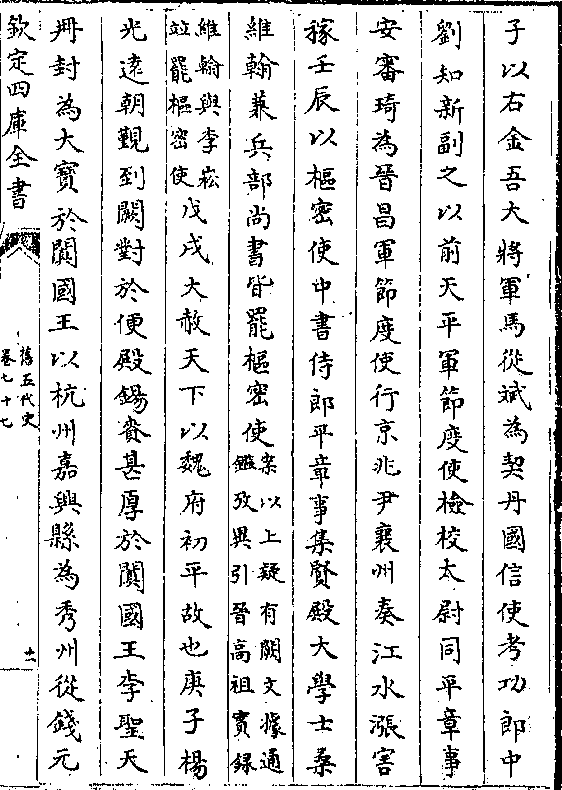 子以右金吾大將軍馬從斌為契丹國信使考功郎中
劉知新副之以前天平軍節度使檢校太尉同平章事
安審琦為晉昌軍節度使行京兆尹襄州奏江水漲害
稼壬辰以樞密使中書侍郎平章事集賢殿大學士桑
維翰兼兵部尚書皆罷樞密使案以上疑有闕文據通鑑攷異引晉高祖實錄
維翰與李崧並罷樞密使戊戌大赦天下以魏府初平故也庚子楊
光遠朝覲到闕對於便殿錫賚甚厚於闐國王李聖天
冊封為大寶於闐國王以杭州嘉興縣為秀州從錢元
欽定四庫全書
舊五代史
卷七十七
十一